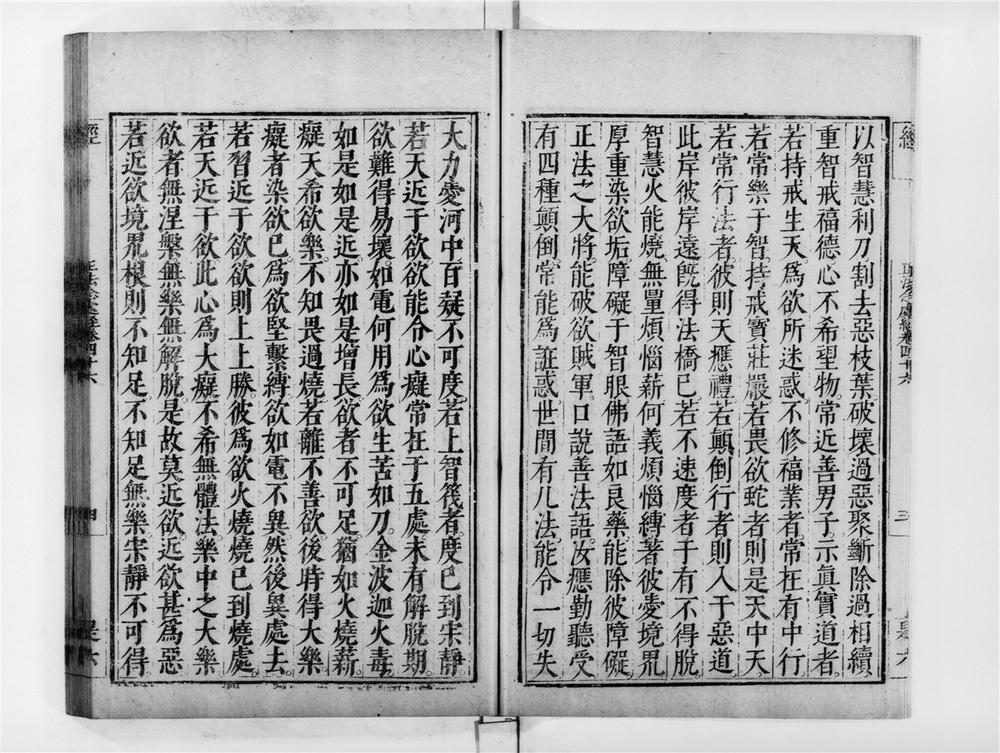 以智慧利刀割去惡枝葉破壞過惡聚斷除過相續
重智戒福德心不希望物常近善男子示眞實道者
若持戒生天爲欲所迷惑不修福業者常在有中行
若常樂于智持戒寶莊嚴若畏欲蛇者則是天中天
若常行法者彼則天應禮若顚倒行者則入于惡道
此岸彼岸遠旣得法橋已若不速度者于有不得脫
智慧火能燒無量煩惱薪何義煩惱縛著彼愛境界
厚重染欲垢障礙于智眼佛語如良藥能除彼障礙
正法之大將能破欲賊軍口說善法語汝應勤聽受
有四種顚倒常能爲誑惑世間有几法能令一切失
大力愛河中百疑不可度若上智筏者度已到寂靜
若天近于欲欲能令心癡常在于五處未有解脫期
欲難得易壞如電何用爲欲生苦如刀金波迦火毒
如是如是近亦如是增長欲者不可足猶如火燒薪
癡天希欲樂不知畏過燒若離不善欲後時得大樂
癡者染欲已爲欲堅繫縛欲如電不異然後異處去
若習近于欲欲則上上勝彼爲欲火燒燒已到燒處
若天近于欲此心爲大癡不希無體法樂中之大樂
欲者無涅槃無樂無解脫是故莫近欲近欲甚爲惡
若近欲境界根則不知足不知足無樂寂靜不可得
經
正法念處經卷四十六
三
經
正法念處經卷四十六
四
是六